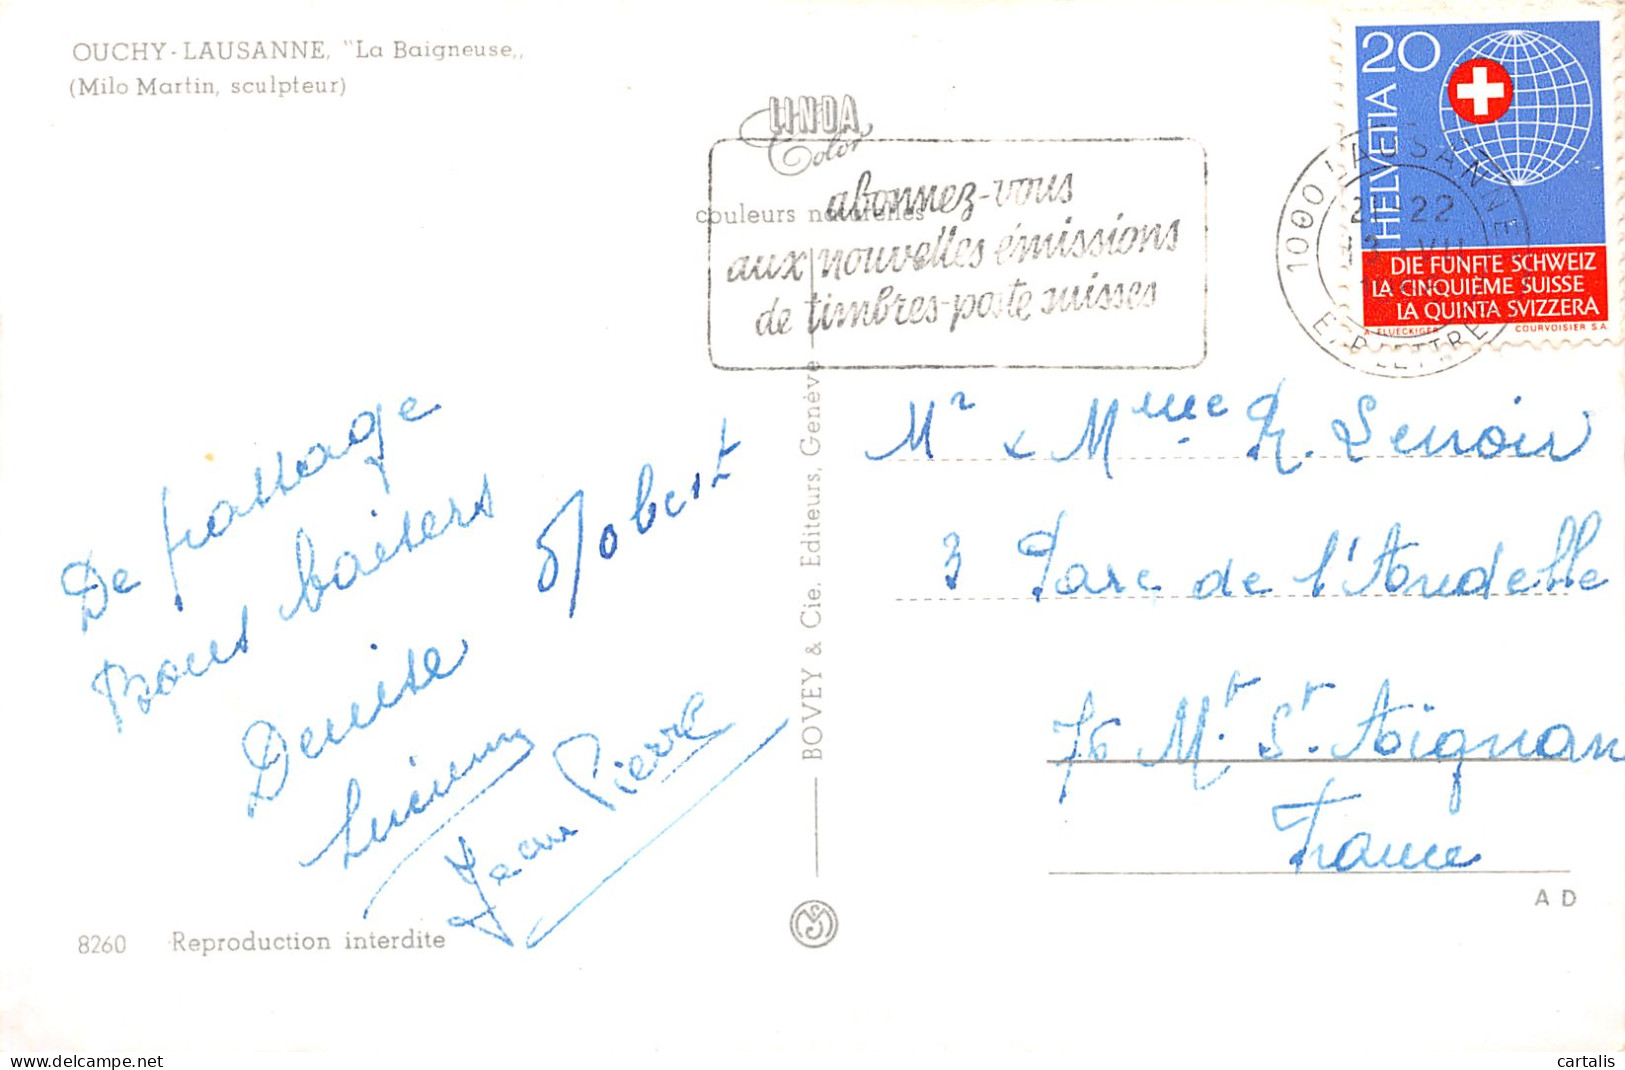 OUCHY-LAUSANNE, "La Baigneuse,,
(Milo Martin, sculpteur)
LINDA
Color
couleurs naturelles
abonnez-vous
aux nouvelles émissions
de timbres-poste suisses
20
HELVETIA
DIE FÜNFTE SCHWEIZ
LA CINQUIÈME SUISSE
LA QUINTA SVIZZERA
A. FLUECKIGER COURVOISIER S.A.
1000 LAUSANNE
22
De passage
Bons baisers
Robert
Denise
Lucienne
Jean Pierre
BOVEY & Cie. Editeurs, Genève
Mr & Mme R. Lenoir
3 Parc de l'Andelle
76 Mt. St. Aignan
France
A D
8260 Reproduction interdite
cartalis